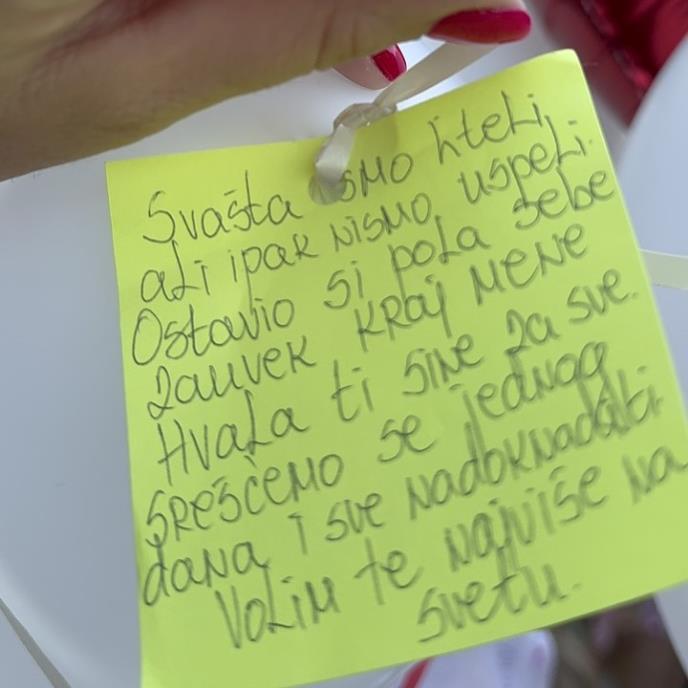 Svašta smo hteli
ali ipak nismo uspeli.
Ostavio si pola sebe
zauvek kraj mene
Hvala ti sine za sve.
srešćemo se jednog
dana i sve nadoknaditi
Volim te najviše na
svetu.